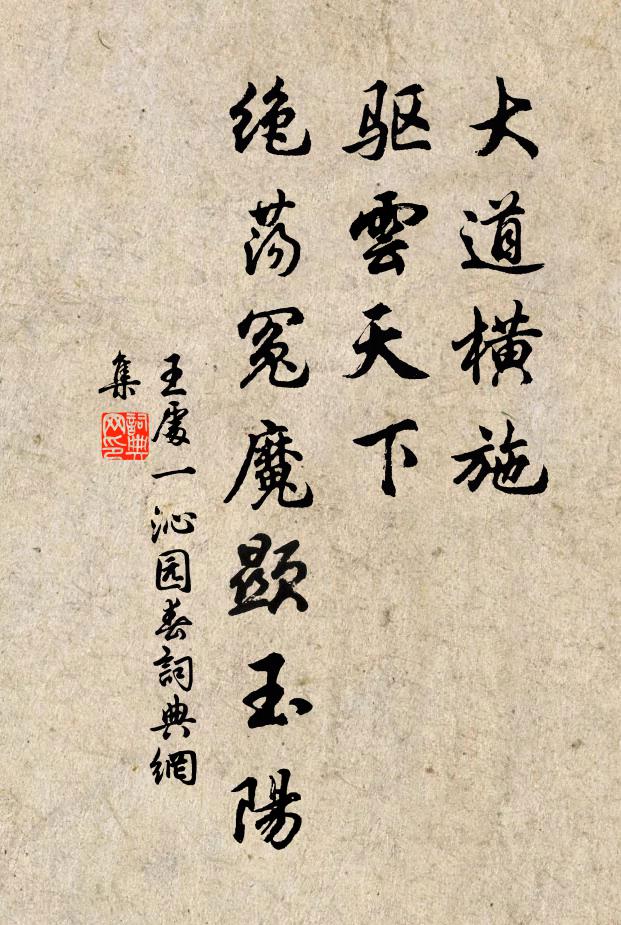 大道横施
驱雲天下
绝荡冤魔顯玉陽
王處一沁园春詞典網
集
詞典网印